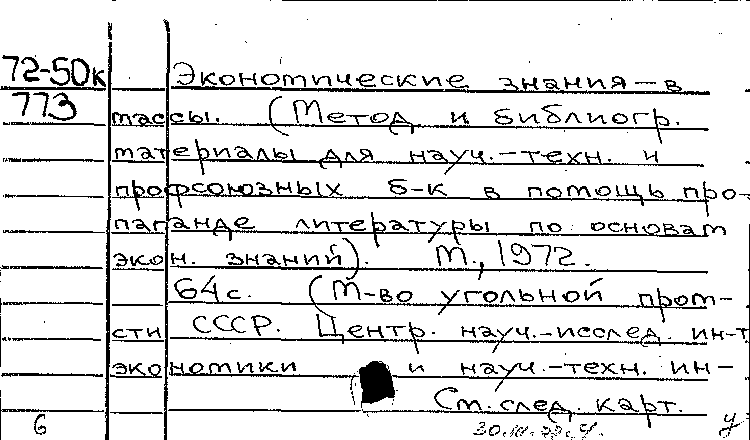 72-50к Экономические знания — в
773 массы. (Метод. и библиогр.
материалы для науч.-техн. и
профсоюзных б-к в помощь про-
паганде литературы по основам
экон. знаний). М., 1972.
64 с. (М-во угольной пром-
сти СССР. Центр. науч.-исслед. ин-т
экономики и науч.-техн. ин-
См. след. карт.
6 у